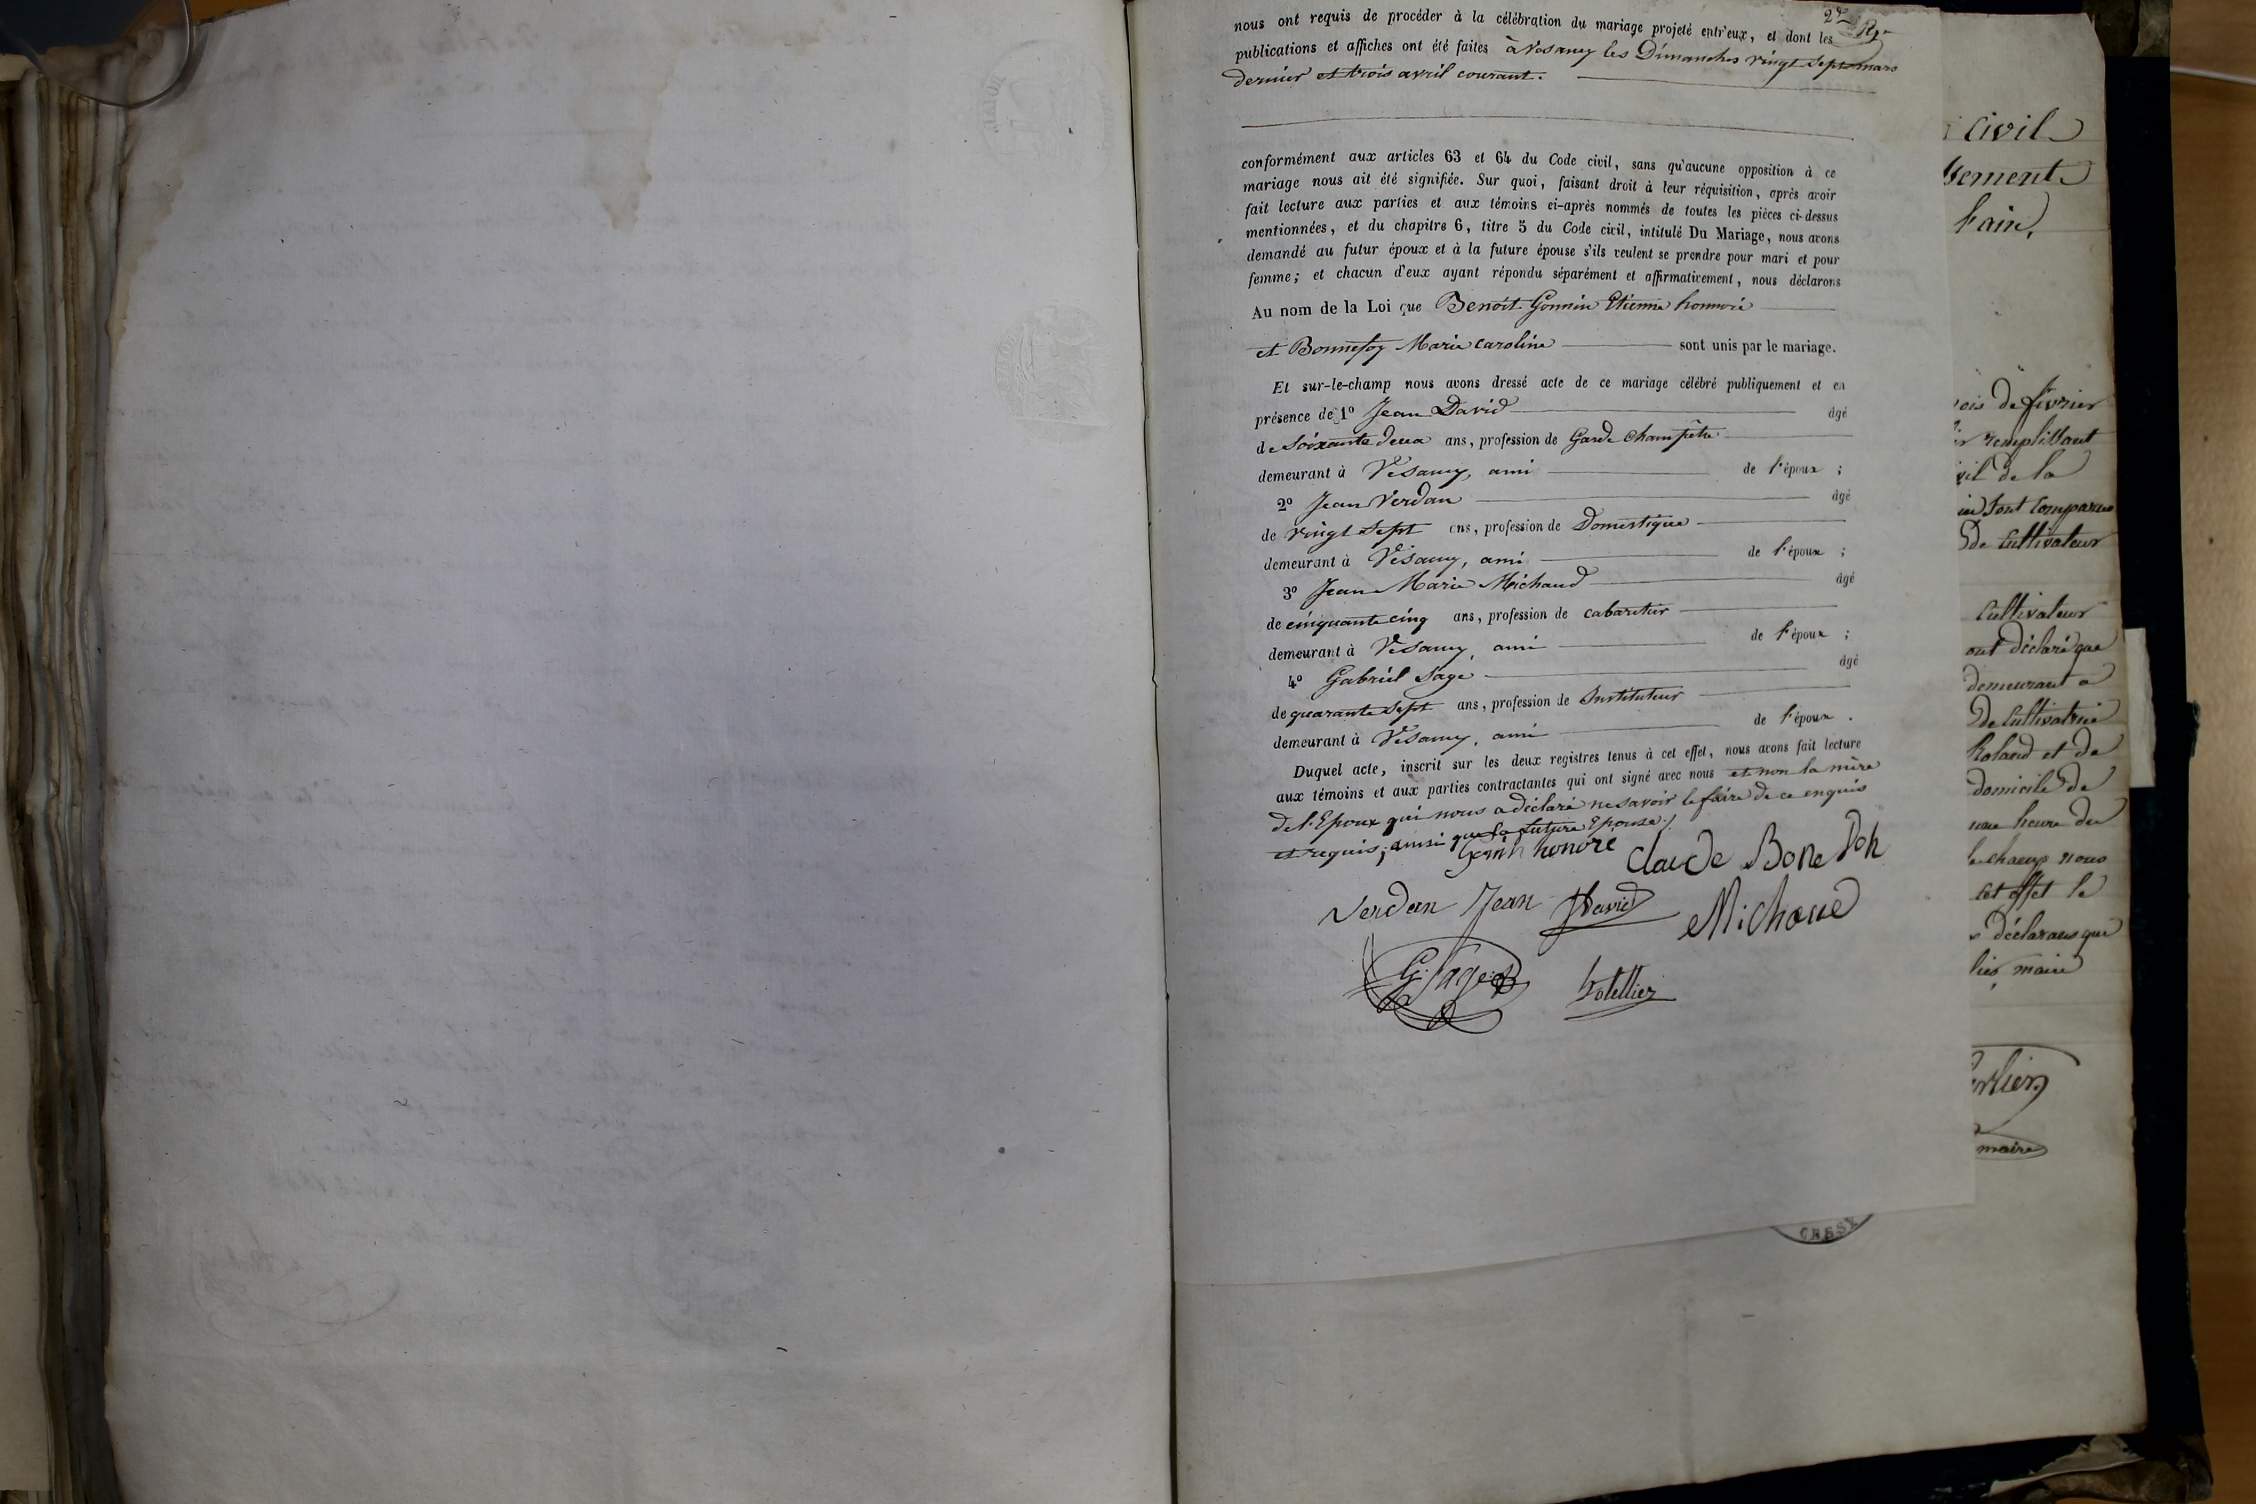 2e R.
nous ont requis de procéder à la célébration du mariage projeté entr'eux, et dont les
publications et affiches ont été faites à Vesancy les Dimanches vingt sept mars
dernier et trois avril courant.
conformément aux articles 63 et 64 du Code civil, sans qu'aucune opposition à ce
mariage nous ait été signifiée. Sur quoi, faisant droit à leur réquisition, après avoir
fait lecture aux parties et aux témoins ci-après nommés de toutes les pièces ci-dessus
mentionnées, et du chapitre 6, titre 5 du Code civil, intitulé Du Mariage, nous avons
demandé au futur époux et à la future épouse s'ils veulent se prendre pour mari et pour
femme; et chacun d'eux ayant répondu séparément et affirmativement, nous déclarons
Au nom de la Loi que Benoit-Gonnin Etienne honnoré
et Bonnefoy Marie caroline sont unis par le mariage.
Et sur-le-champ nous avons dressé acte de ce mariage célébré publiquement et en
présence de 1º Jean David âgé
de soixante deux ans, profession de Garde champêtre
demeurant à Vesancy, ami de l'époux ;
2º Jean Verdan âgé
de vingt sept ans, profession de Domestique
demeurant à Vesancy, ami de l'époux ;
3º Jean Marie Michaud âgé
de cinquante cinq ans, profession de cabaretier
demeurant à Vesancy, ami de l'époux ;
4º Gabriel Sage âgé
de quarante sept ans, profession de Instituteur
demeurant à Vesancy, ami de l'époux .
Duquel acte, inscrit sur les deux registres tenus à cet effet, nous avons fait lecture
aux témoins et aux parties contractantes qui ont signé avec nous et non la mère
de l'Epoux qui nous a déclaré ne savoir le faire de ce enquis
et requis, ainsi que la future Epouse ./.
honoré Claude Bone
Verdan Jean JDavid Michaud
G. Sage
civil
bain,
ois de février
remplissant
vil de la
sont comparus
de cultivateur
cultivateur
ont déclaré que
demeurant a
de cultivatrice
Roland et de
domicile de
heure du
le champ nous
cet effet le
déclarans que
maire
maire